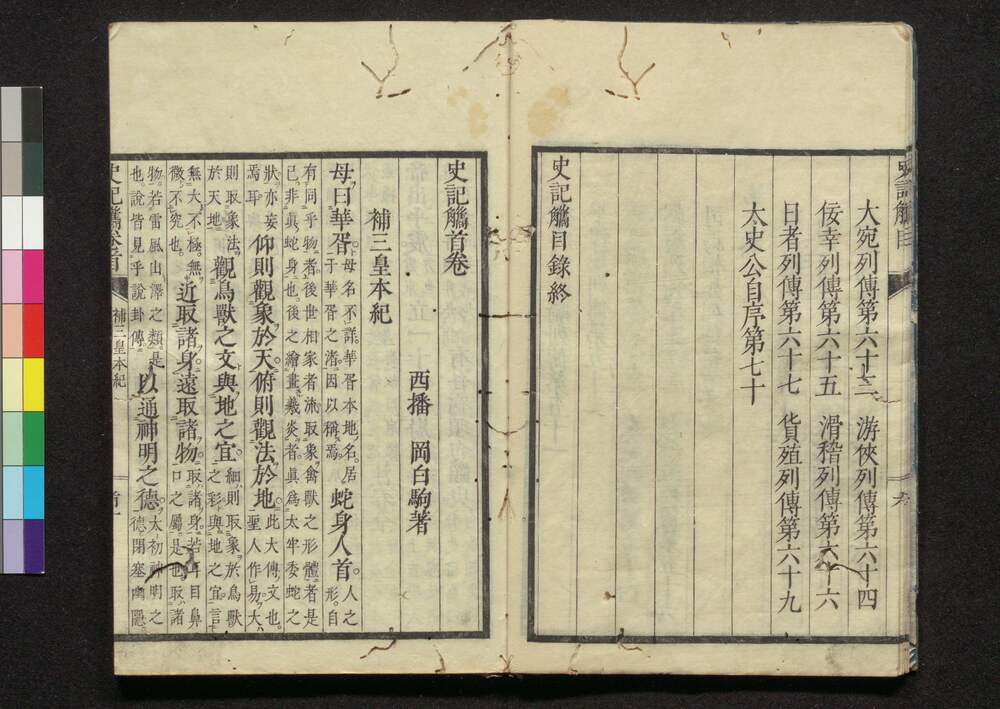 史記觿目
大宛列傳第六十三　游俠列傳第六十四
佞幸列傳第六十五　滑稽列傳第六十六
日者列傳第六十七　貨殖列傳第六十九
太史公自序第七十
史記觿目錄終
六
史記觿首卷
西播　岡白駒著
補三皇本紀
母曰華胥。母名不詳。華胥本地名。居于華胥之渚。因以稱焉。蛇身人首。人之形。自
有同乎物者。後世相家者流。取象禽獸之形體者是已。非眞蛇身也。後之繪畫羲炎者。眞爲太牢委蛇之
狀。亦妄焉耳。仰則觀象於天。俯則觀法於地。此大傳文也。聖人作易。大
則取象法於天地。觀鳥獸之文與地之宜。細則取象於鳥獸之彩與地之宜。言
無大不極。無微不究也。近取諸身。遠取諸物。取諸身。若耳目鼻口之屬。是也。取諸
物。若雷風山澤之類。是也。說皆見乎說卦傳。以通神明之德。太初神明之德。閉塞幽隱。
史記觿卷首
補三皇本紀
首一